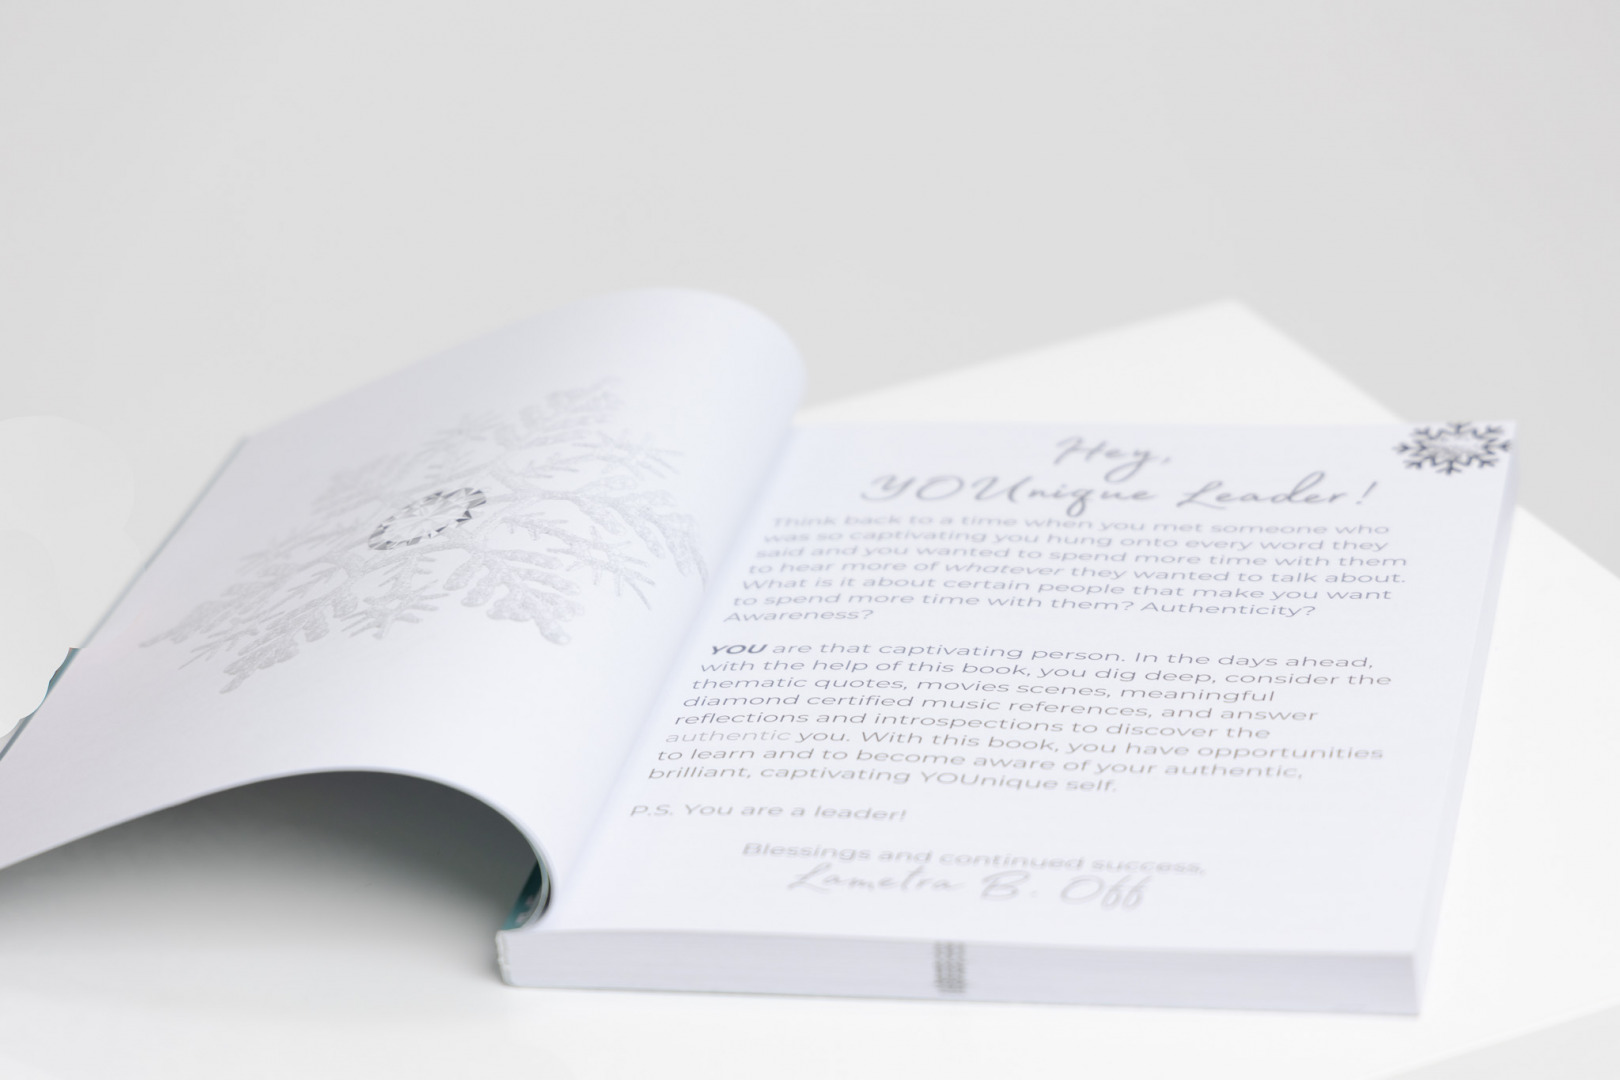 Hey,
YOUnique Leader!
Think back to a time when you met someone who
was so captivating you hung onto every word they
said and you wanted to spend more time with them
to hear more of whatever they wanted to talk about.
What is it about certain people that make you want
to spend more time with them? Authenticity?
Awareness?
YOU are that captivating person. In the days ahead,
with the help of this book, you dig deep, consider the
thematic quotes, movies scenes, meaningful
diamond certified music references, and answer
reflections and introspections to discover the
authentic you. With this book, you have opportunities
to learn and to become aware of your authentic,
brilliant, captivating YOUnique self.
P.S. You are a leader!
Blessings and continued success,
Lametra B. Off